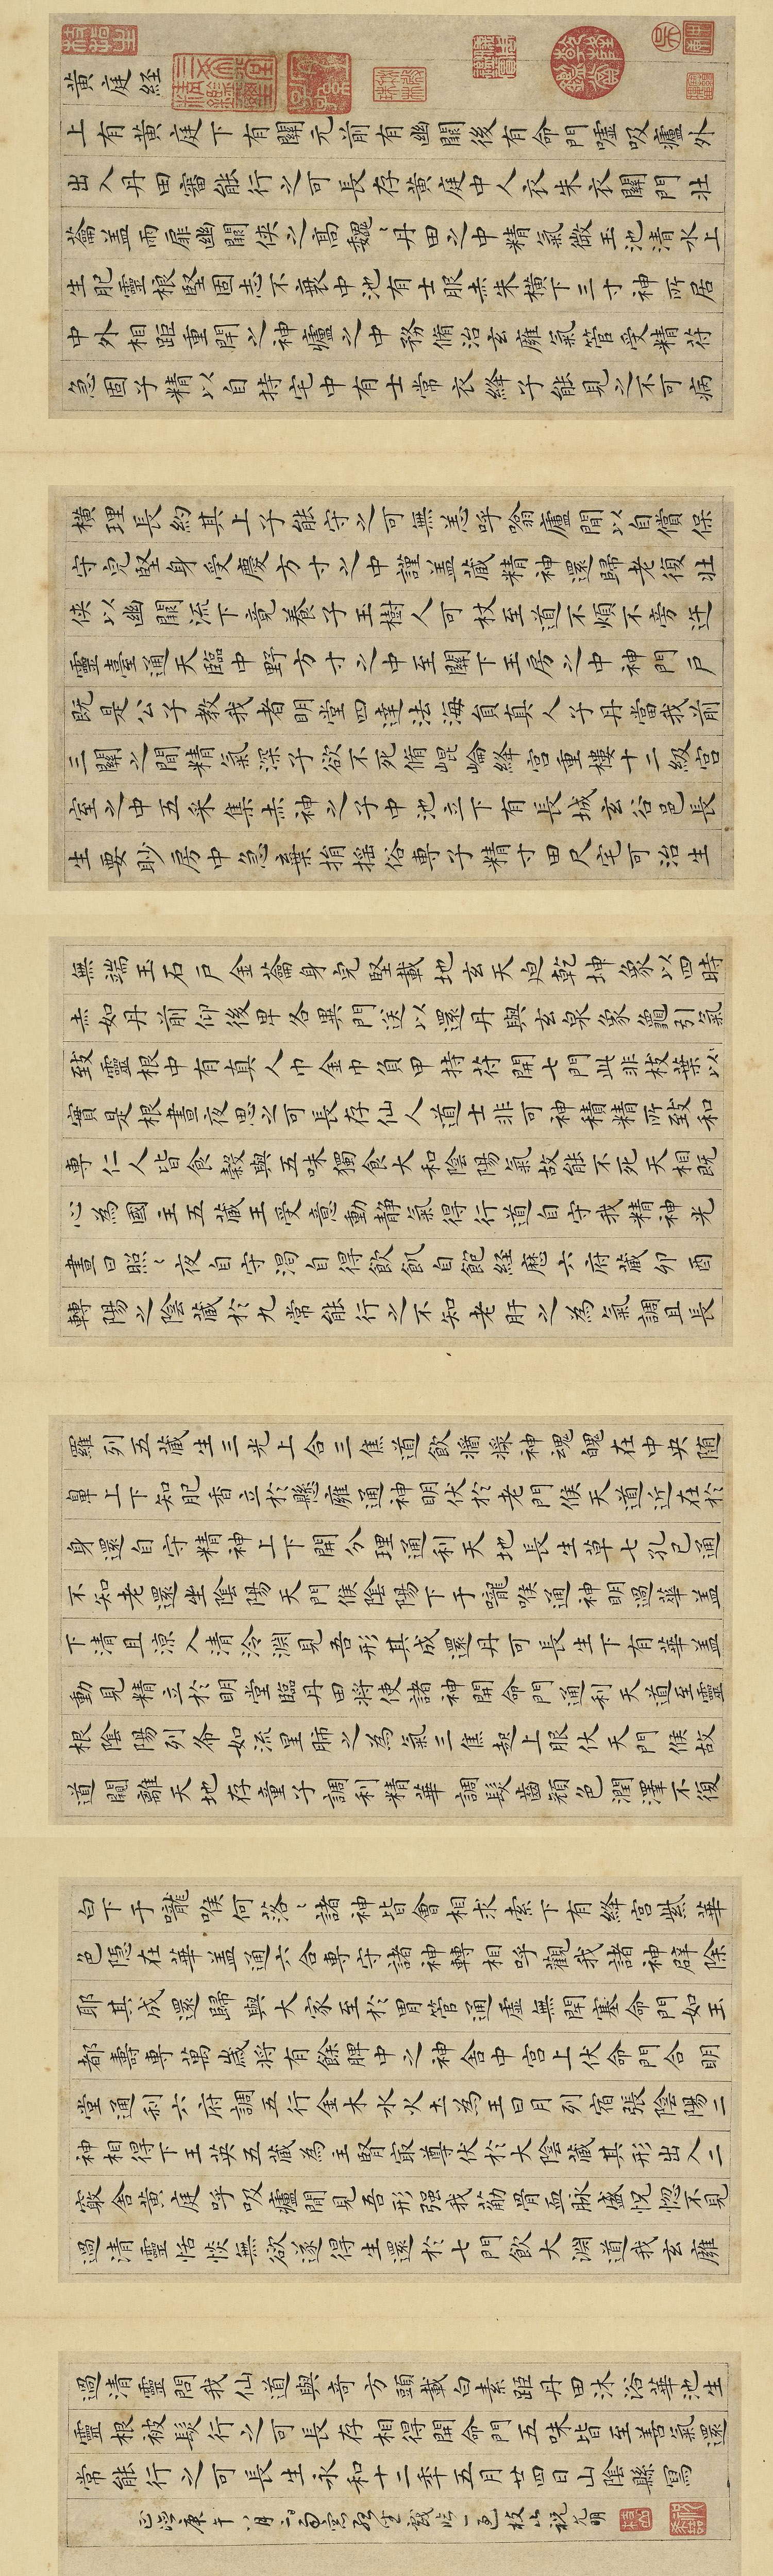 黄庭経
上有黄庭下有關元前有幽闕後有命門噓吸廬外
出入丹田審能行之可長存黄庭中人衣朱衣關門壯
籥盖兩扉幽闕俠之高巍〻丹田之中精氣微玉池清水上
生肥靈根堅固志不衰中池有士服赤朱橫下三寸神所居
中外相距重閇之神廬之中務脩治玄廱氣管受精苻
急固子精以自持宅中有士常衣絳子能見之不可病
橫理長約其上子能守之可無恙呼噏廬間以自償保
守完堅身受慶方寸之中謹盖藏精神還歸老復壯
俠以幽闕流下竟養子玉樹人可杖至道不煩不旁迕
靈臺通天臨中野方寸之中至關下玉房之中神門戶
既是公子教我者明堂四達法海負真人子丹當我前
三關之間精氣深子欲不死脩崐崘絳宫重樓十二級宫
室之中五采集赤神之子中池立下有長城玄谷邑長
生要眇房中急棄捐摇俗專子精寸田尺宅可治生
無端玉石戶金籥身完堅載地玄天迫乾坤象以四時
赤如丹前仰後卑各異門送以還丹與玄泉象龜引氣
致靈根中有真人巾金巾負甲持苻開七門此非枝葉以
實是根晝夜思之可長存仙人道士非可神積精所致和
專仁人皆食穀與五味獨食大和陰陽氣故能不死天相既
心為國主五藏王受意動静氣得行道自守我精神光
晝日照〻夜自守渴自得飲飢自飽経歷六府藏卯酉
轉陽之陰藏於九常能行之不知老肝之為氣調且長
羅列五藏生三光上合三焦道飲醬漿神魂魄在中央随
鼻上下知肥香立於懸廱通神明伏於老門候天道近在於
身還自守精神上下開分理通利天地長生草七孔已通
不知老還坐陰陽天門候陰陽下于嚨喉通神明過華盖
下清且涼入清泠淵見吾形其成還丹可長生下有華盖
動見精立於明堂臨丹田将使諸神開命門通利天道至靈
根陰陽列布如流星肺之為氣三焦起上服伏天門候故
道闚離天地存童子調利精華調髮齒顔色潤澤不復
白下于嚨喉何落〻諸神皆會相求索下有絳宫紫華
色隱在華盖通六合專守諸神轉相呼觀我諸神辟除
耶其成還歸與大家至於胃管通虚無閇塞命門如玉
都壽專萬歲将有餘脾中之神舍中宫上伏命門合明
堂通利六府調五行金木水火土為王日月列宿張陰陽二
神相得下玉英五藏為主腎㝡尊伏於大陰藏其形出入二
竅舍黄庭呼吸廬間見吾形强我筋骨血脉盛怳惚不見
過清靈恬惔無欲遂得生還於七門飲大淵道我玄廱
過清靈問我仙道與奇方頭載白素距丹田沐浴華池生
靈根被髮行之可長存相得開命門五味皆至善氣還
常能行之可長生永和十二年五月廿四日山陰縣寫
正德庚午八月 戲臨一過枝山祝允明